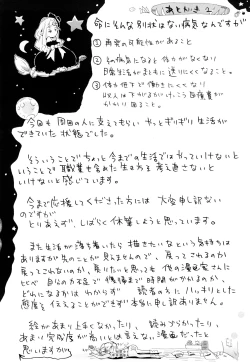 あとがき2
命にそんな別状はない病気なんですが
① 再発の可能性があること
② その病気になると体力がなくなり
日常生活がまともに送りにくくなること。
③ 体力低下で働きにくくなり
収入は下がるがけっこう医療費が
かかり困ること。
今回も周囲の人に支えてもらい やっとギリギリ生活が
できていた状態でした。
そういうことでちょっと今までの生活ではやっていけない と
いうことで職業を含めた生き方を考え直さないと
いけないと感じています。
今まで応援してくださった方には 大変申し訳ない
のですが
とりあえず、しばらく休筆しようと思ています。
また生活が落ち着いたら描きたいなという気持ちは
ありますが先のことが見えませんので、戻ってこれるのか
戻ってこれないのか、戻りたいと思っても他の漫画家さんに
比べ自分の不器用で復帰まで時間がかかるのか、
どれになるかはわからず 読者の方にハッキリとした
態度を伝えることができず本当に申し訳ありません。
絵があまり上手くなかったり、読みづらかったり、
あまり完成度が高いとは言えない漫画だったと
思いますが